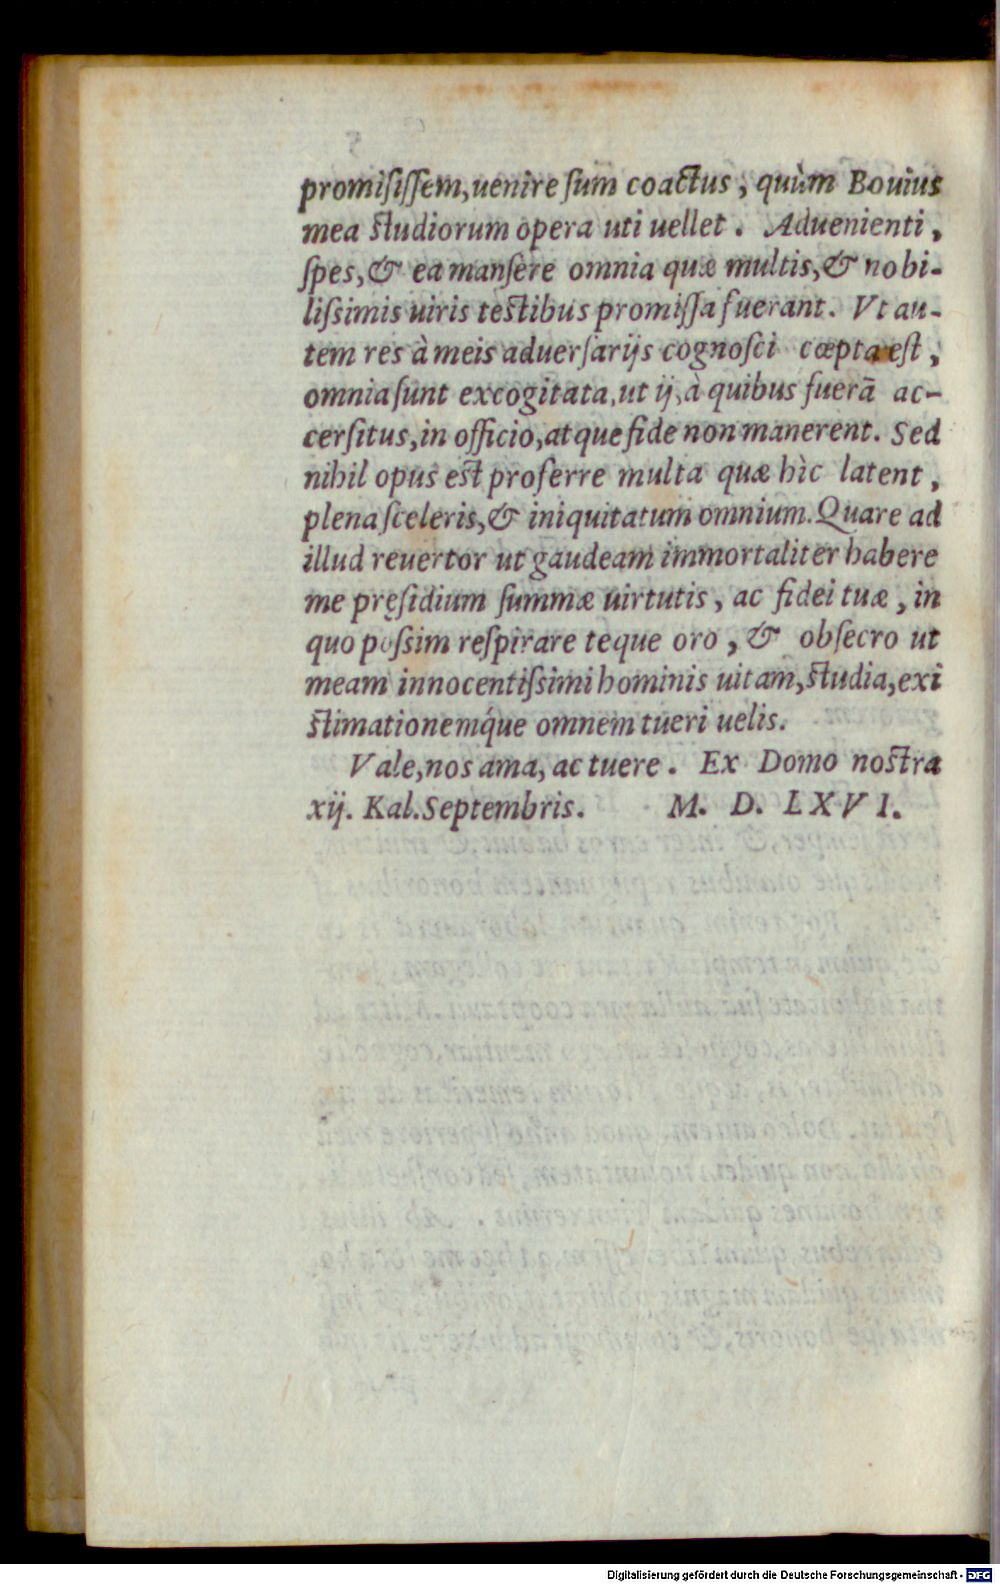 promiſiſſem, uenire ſum coactus, quùm Bouius
mea ſtudiorum opera uti uellet. Aduenienti,
ſpes, & ea manſere omnia quæ multis, & nobi-
liſsimis uiris teſtibus promiſſa fuerant. Vt au-
tem res à meis aduerſarijs cognoſci cœpta eſt,
omnia ſunt excogitata, ut ij, à quibus fuerā ac-
cerſitus, in officio, atque fide non manerent. Sed
nihil opus eſt proferre multa quæ hìc latent,
plena ſceleris, & iniquitatum omnium. Quare ad
illud reuertor ut gaudeam immortaliter habere
me pręſidium ſummæ uirtutis, ac fidei tuæ, in
quo poſsim reſpirare teque oro, & obſecro ut
meam innocentiſsimi hominis uitam, ſtudia, exi
ſtimationemq́ue omnem tueri uelis.
Vale, nos ama, ac tuere. Ex Domo noſtra
xij. Kal. Septembris. M. D. LXVI.
Digitalisierung gefördert durch die Deutsche Forschungsgemeinschaft - DFG